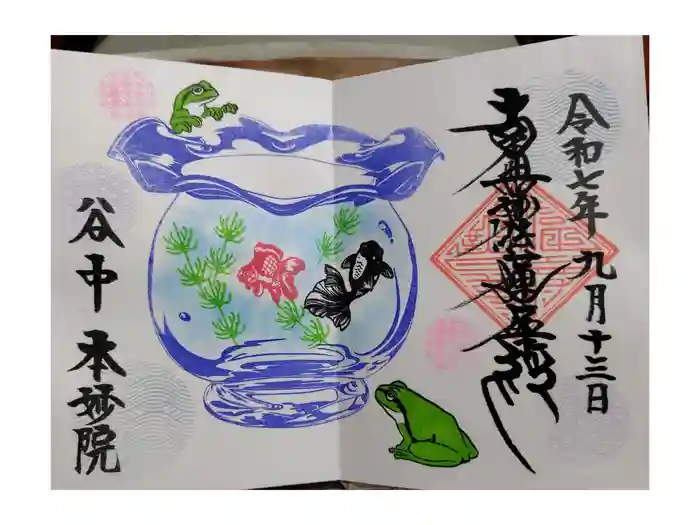 令和七年九月十三日
南無妙法蓮華経
谷中 本妙院